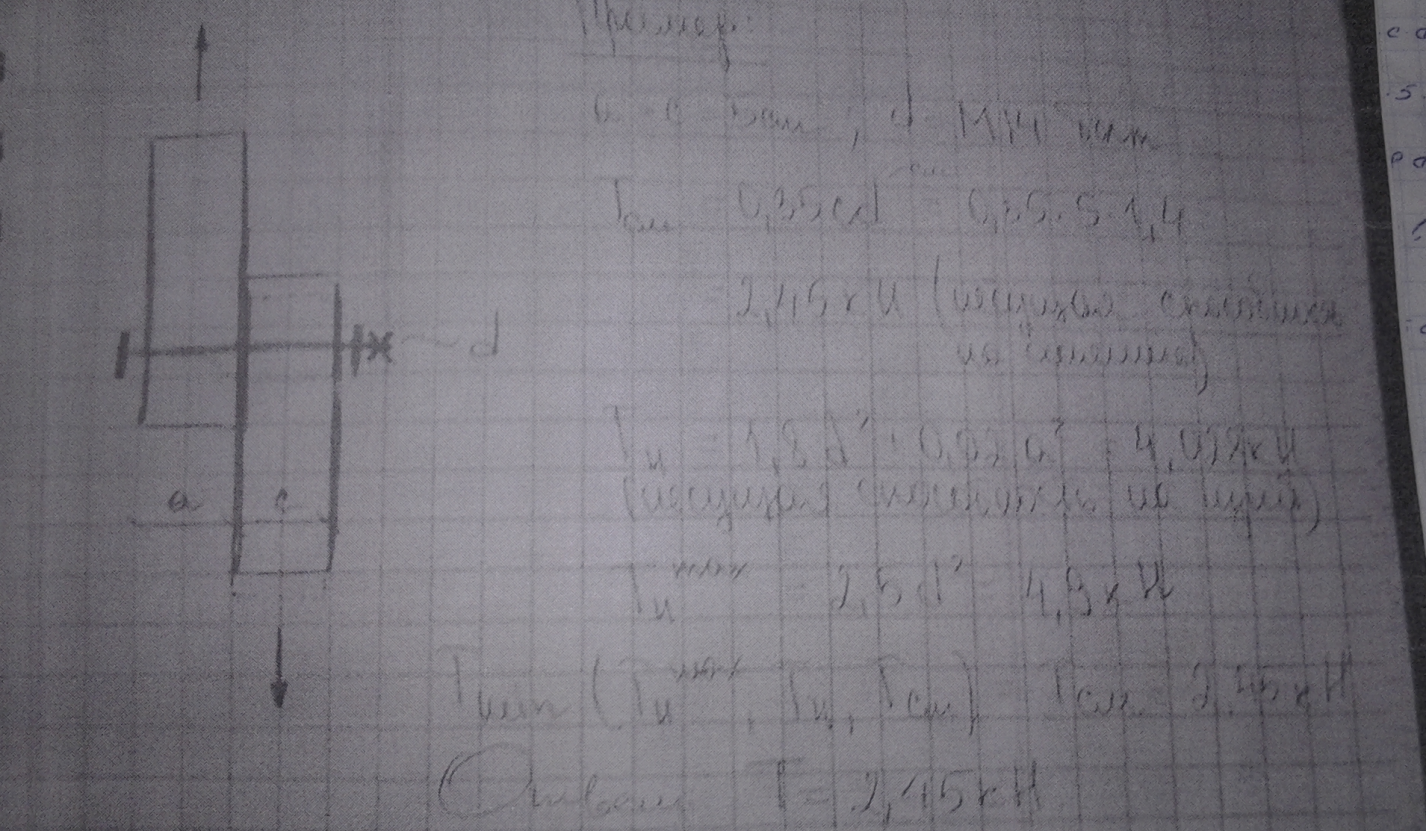 Пример:
a = c = 5 см ; d = М14 болт
Tсм = 0,35cd = 0,35·5·1,4
= 2,45кН (несущая способность
на смятие)
d
Tи = 1,8d² + 0,02a² = 4,028кН
(несущая способность на изгиб)
a c
Tиmax = 2,5d² = 4,9кН
Tmin (Tиmax, Tи, Tсм) = Tсм = 2,45кН
Ответ T = 2,45кН